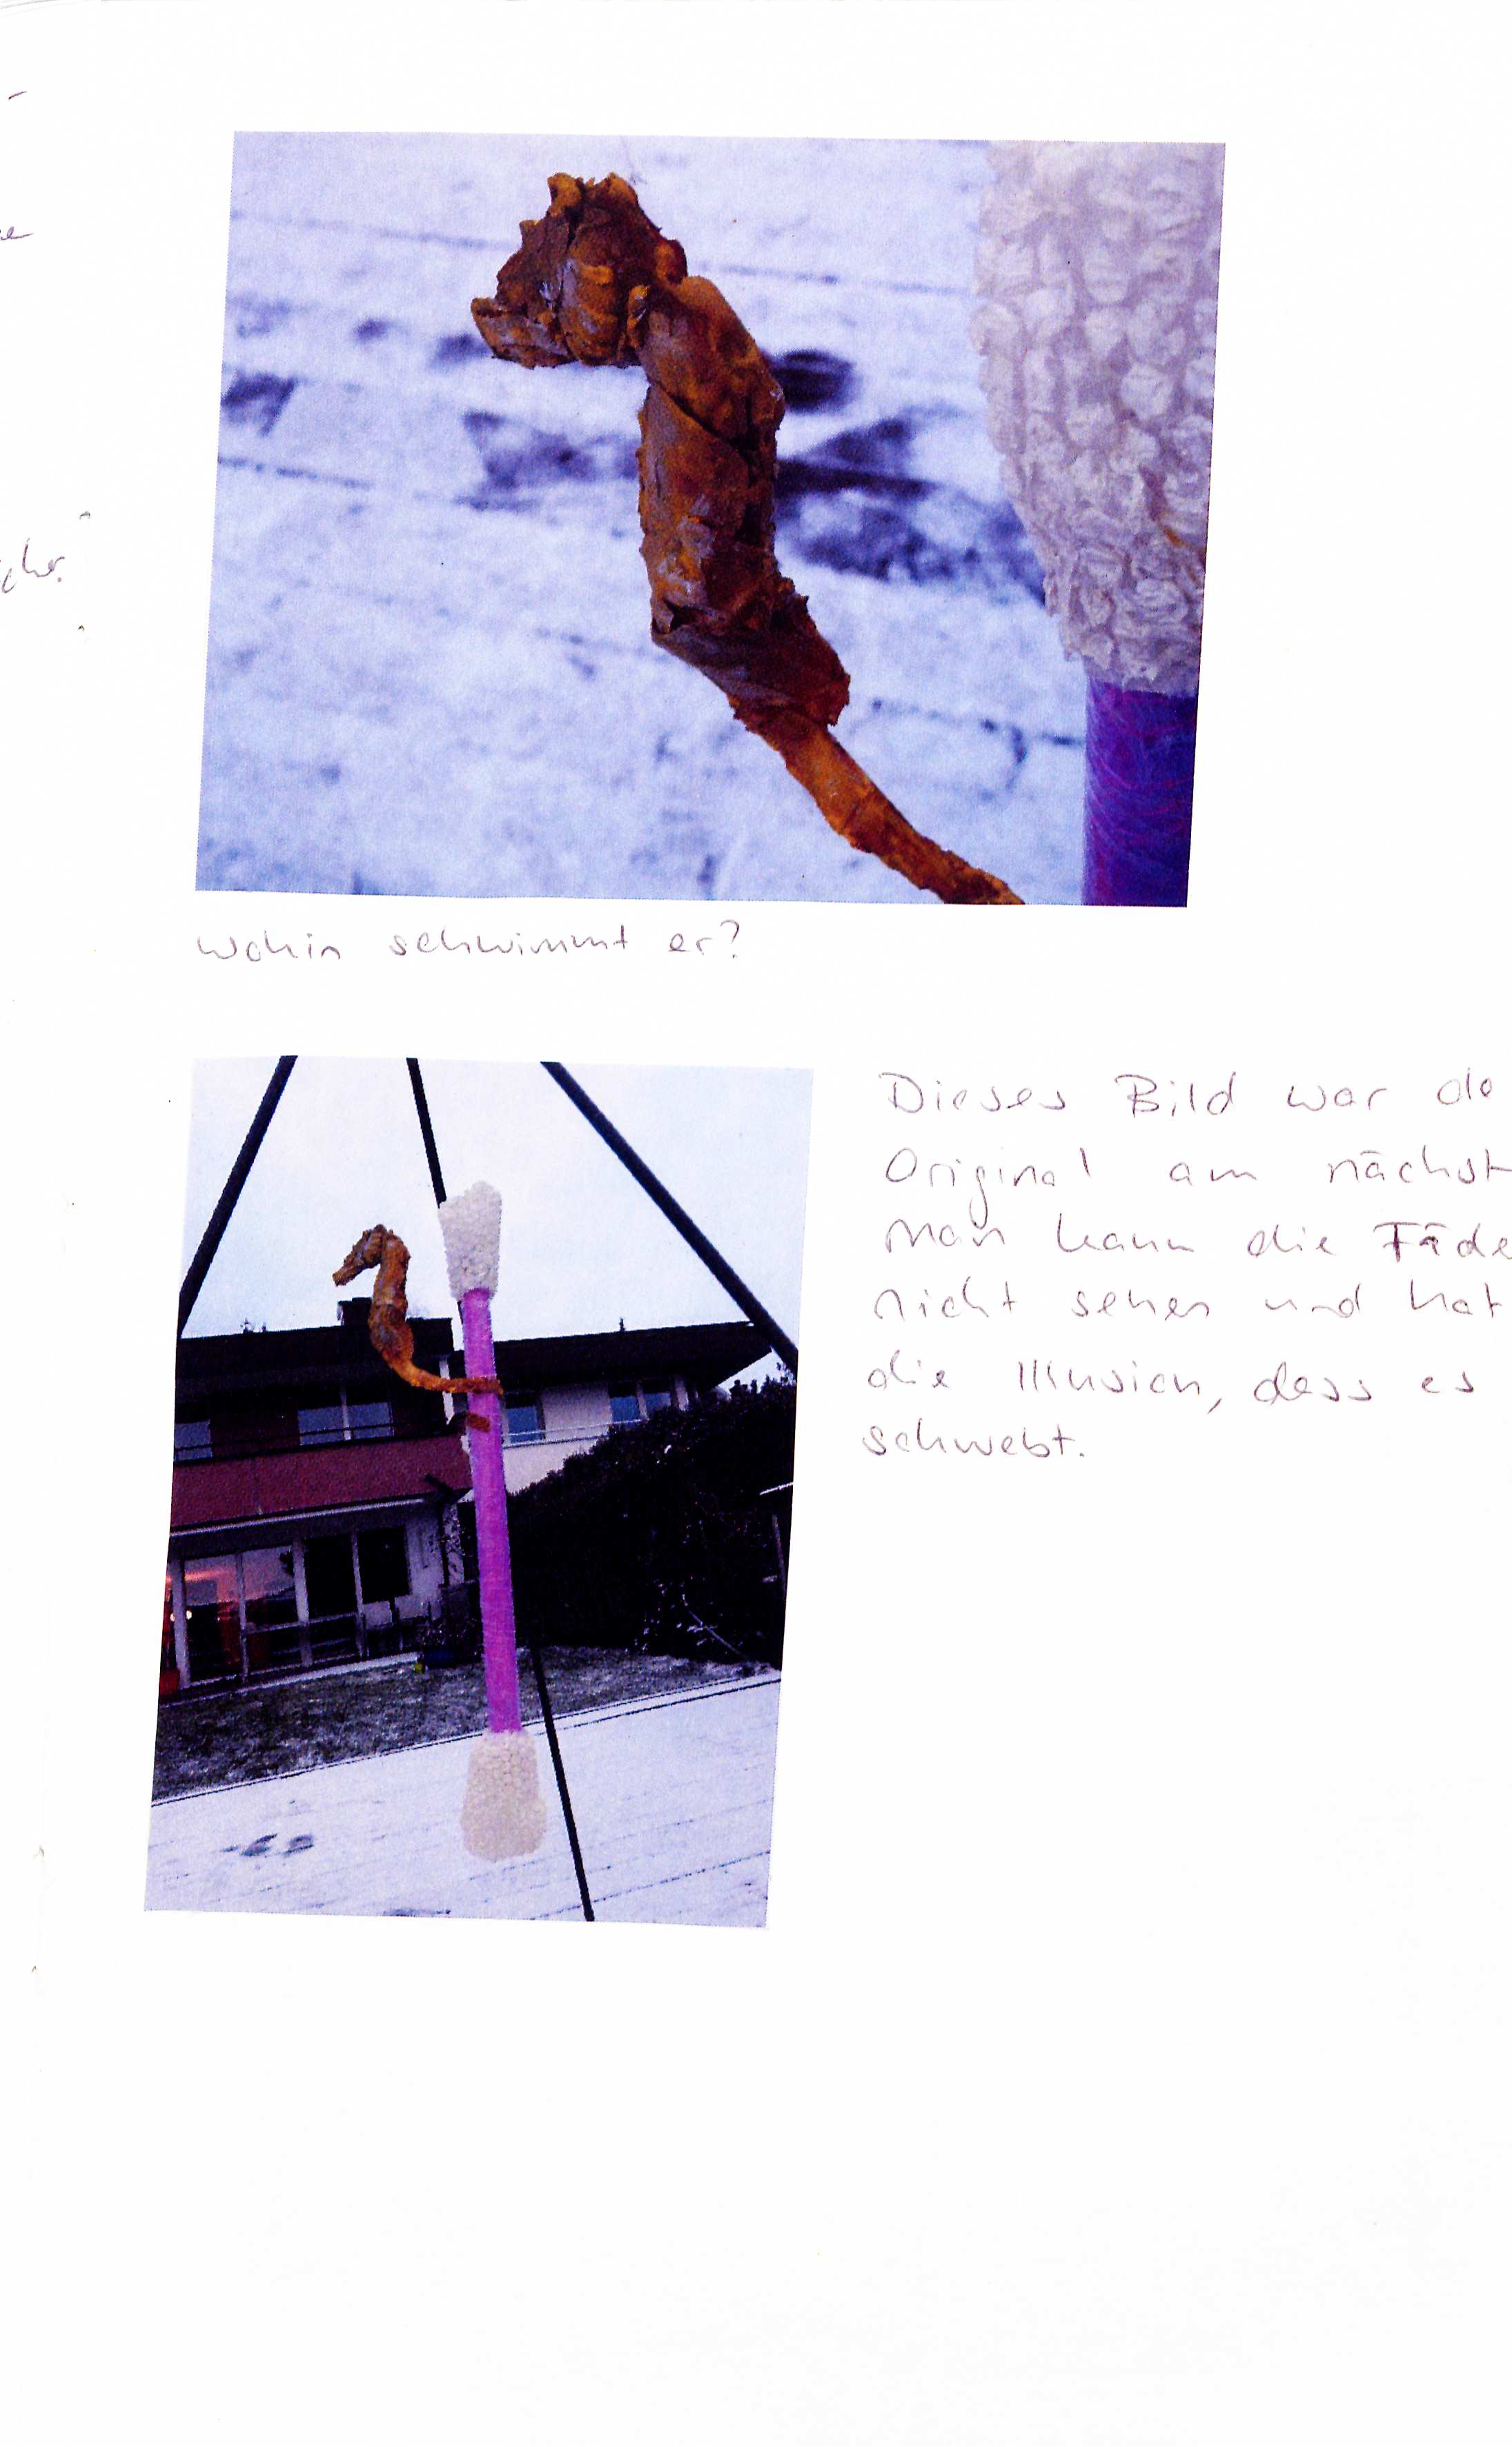 Wohin schwimmt er?
Dieses Bild war de
Original am nächst
Man kann die Fäde
nicht sehen und hat
die Illusion, dass es
schwebt.